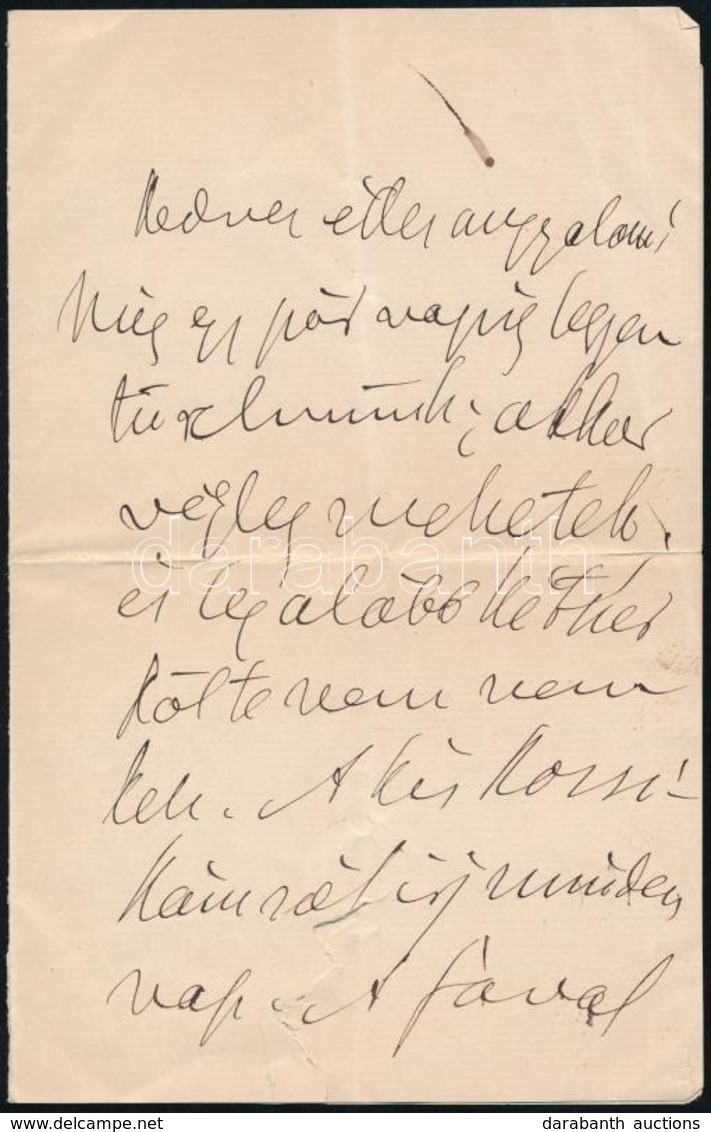 Kedves édes angyalom!
Még egy pár napig legyen
türelmünk, akkor
végleg mehetek,
és legalább kétszer
költenem nem
kell. A kis Kocsi-
kámról írj minden
nap. A
darabanth
www.delcampe.net
darabanth auctions